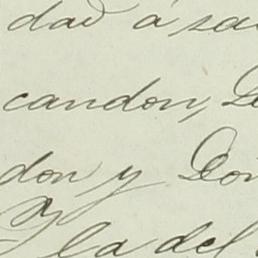 dad á sa
candon,
don y Don
Y la del